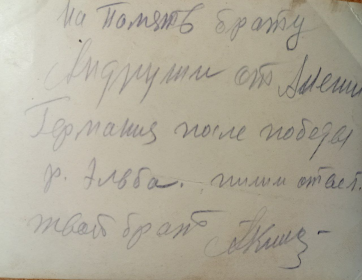 На Память брату
Андрюши от
Германия после победы
р. Эльба. пиши ответ
твой брат